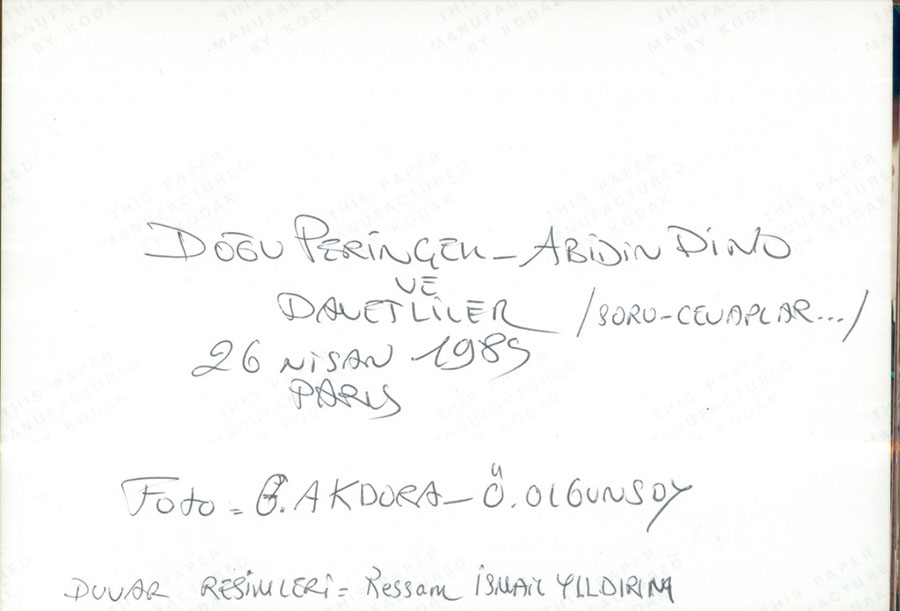 DOĞU PERİNÇEK - ABİDİN DİNO
VE
DAVETLİLER /SORU-CEVAPLAR.../
26 NİSAN 1989
PARIS
Foto = AKDORA - Ö. OLGUNSOY
DUVAR RESİMLERİ = Ressam İSMAİL YILDIRIM
THIS PAPER
MANUFACTURED
BY KODAK